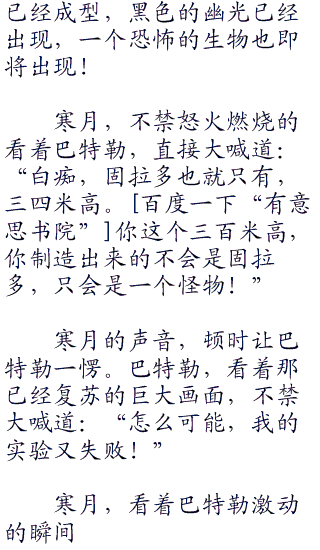 已经成型，黑色的幽光已经
出现，一个恐怖的生物也即
将出现！
寒月，不禁怒火燃烧的
看着巴特勒，直接大喊道：
“白痴，固拉多也就只有，
三四米高。[百度一下“有意
思书院”]你这个三百米高，
你制造出来的不会是固拉
多，只会是一个怪物！”
寒月的声音，顿时让巴
特勒一愣。巴特勒，看着那
已经复苏的巨大画面，不禁
大喊道：“怎么可能，我的
实验又失败！”
寒月，看着巴特勒激动
的瞬间